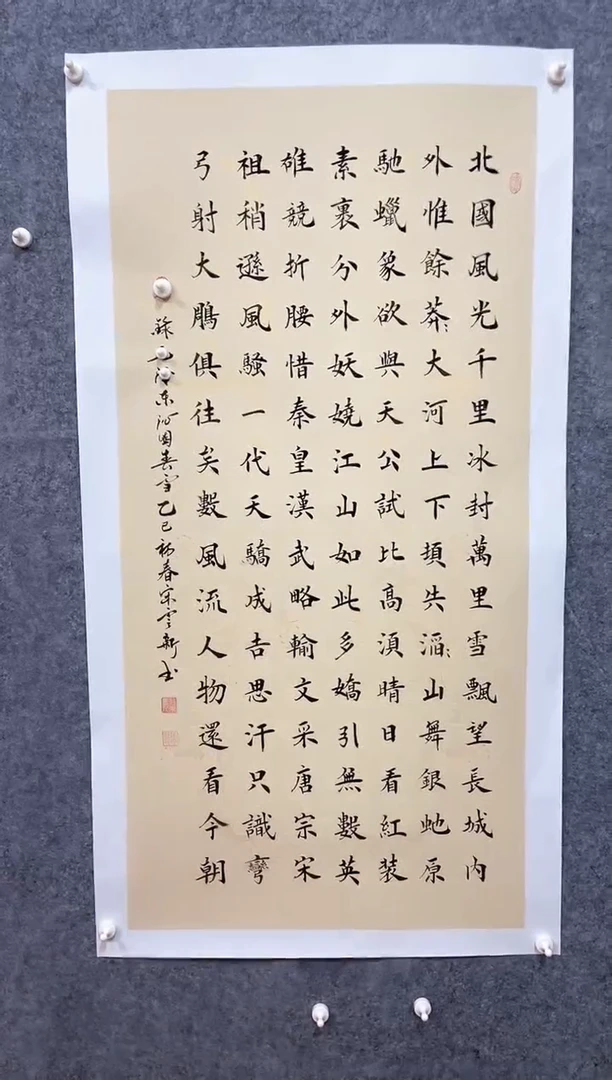 北國風光千里冰封萬里雪飄望長城內
外惟餘莽〻大河上下頓失滔〻山舞銀虵原
馳蠟象欲與天公試比高須晴日看紅裝
素裹分外妖嬈江山如此多嬌引無數英
雄競折腰惜秦皇漢武略輸文采唐宗宋
祖稍遜風騷一代天驕成吉思汗只識彎
弓射大鵰俱往矣數風流人物還看今朝
錄毛澤东沁園春雪乙巳初春宋雲新书